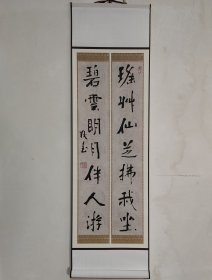 瑶艸仙芝拂我坐
碧雲明月伴人游